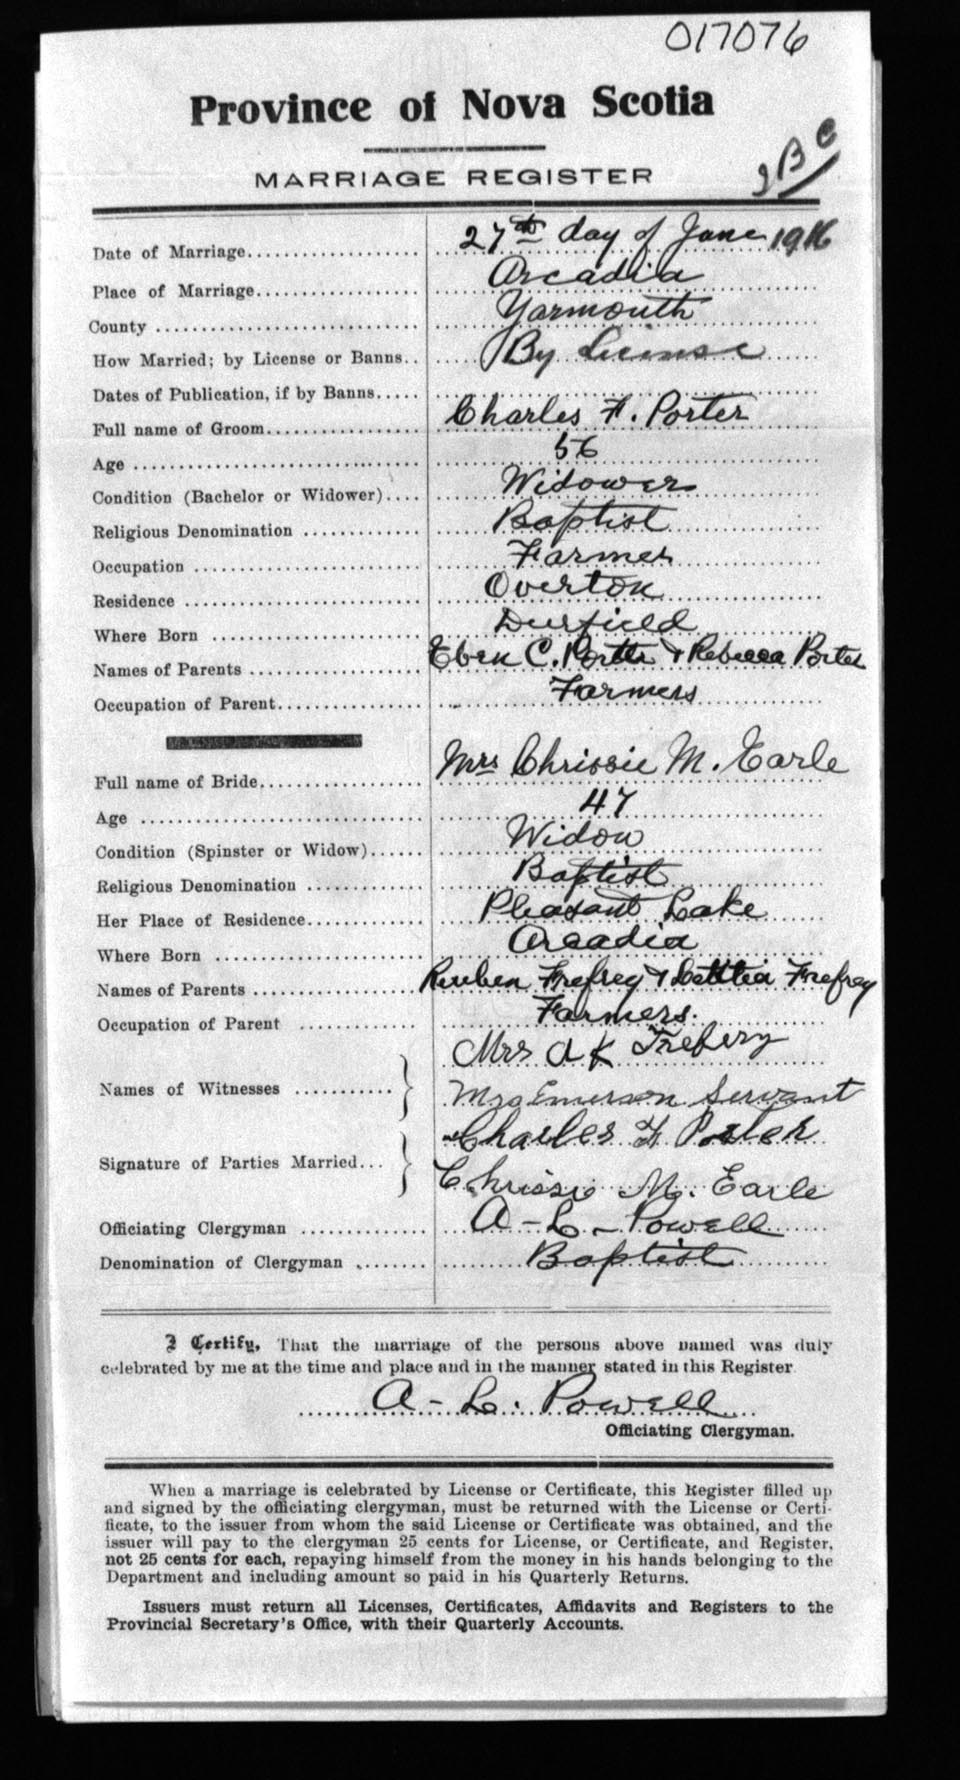 017076
Province of Nova Scotia
MARRIAGE REGISTER
Date of Marriage 27th day of June 1916
Place of Marriage Arcadia
County Yarmouth
How Married; by License or Banns By License
Dates of Publication, if by Banns
Full name of Groom Charles F. Porter
Age 56
Condition (Bachelor or Widower) Widower
Religious Denomination Baptist
Occupation Farmer
Residence Overton
Where Born Deerfield
Names of Parents Eben C. Porter & Rebecca Porter
Occupation of Parent Farmers
Full name of Bride Mrs Chrissie M. Earle
Age 47
Condition (Spinster or Widow) Widow
Religious Denomination Baptist
Her Place of Residence Pleasant Lake
Where Born Arcadia
Names of Parents Reuben Trefrey & Trefrey
Occupation of Parent Farmers.
Mrs A K Trefery
Names of Witnesses
Mrs Emerson Servant
Charles F Porter
Signature of Parties Married
Chrissie M. Earle
Officiating Clergyman A - L - Powell
Denomination of Clergyman Baptist
I Certify, That the marriage of the persons above named was duly
celebrated by me at the time and place and in the manner stated in this Register.
A - L. Powell
Officiating Clergyman.
When a marriage is celebrated by License or Certificate, this Register filled up
and signed by the officiating clergyman, must be returned with the License or Certi-
ficate, to the issuer from whom the said License or Certificate was obtained, and the
issuer will pay to the clergyman 25 cents for License, or Certificate, and Register,
not 25 cents for each, repaying himself from the money in his hands belonging to the
Department and including amount so paid in his Quarterly Returns.
Issuers must return all Licenses, Certificates, Affidavits and Registers to the
Provincial Secretary's Office, with their Quarterly Accounts.